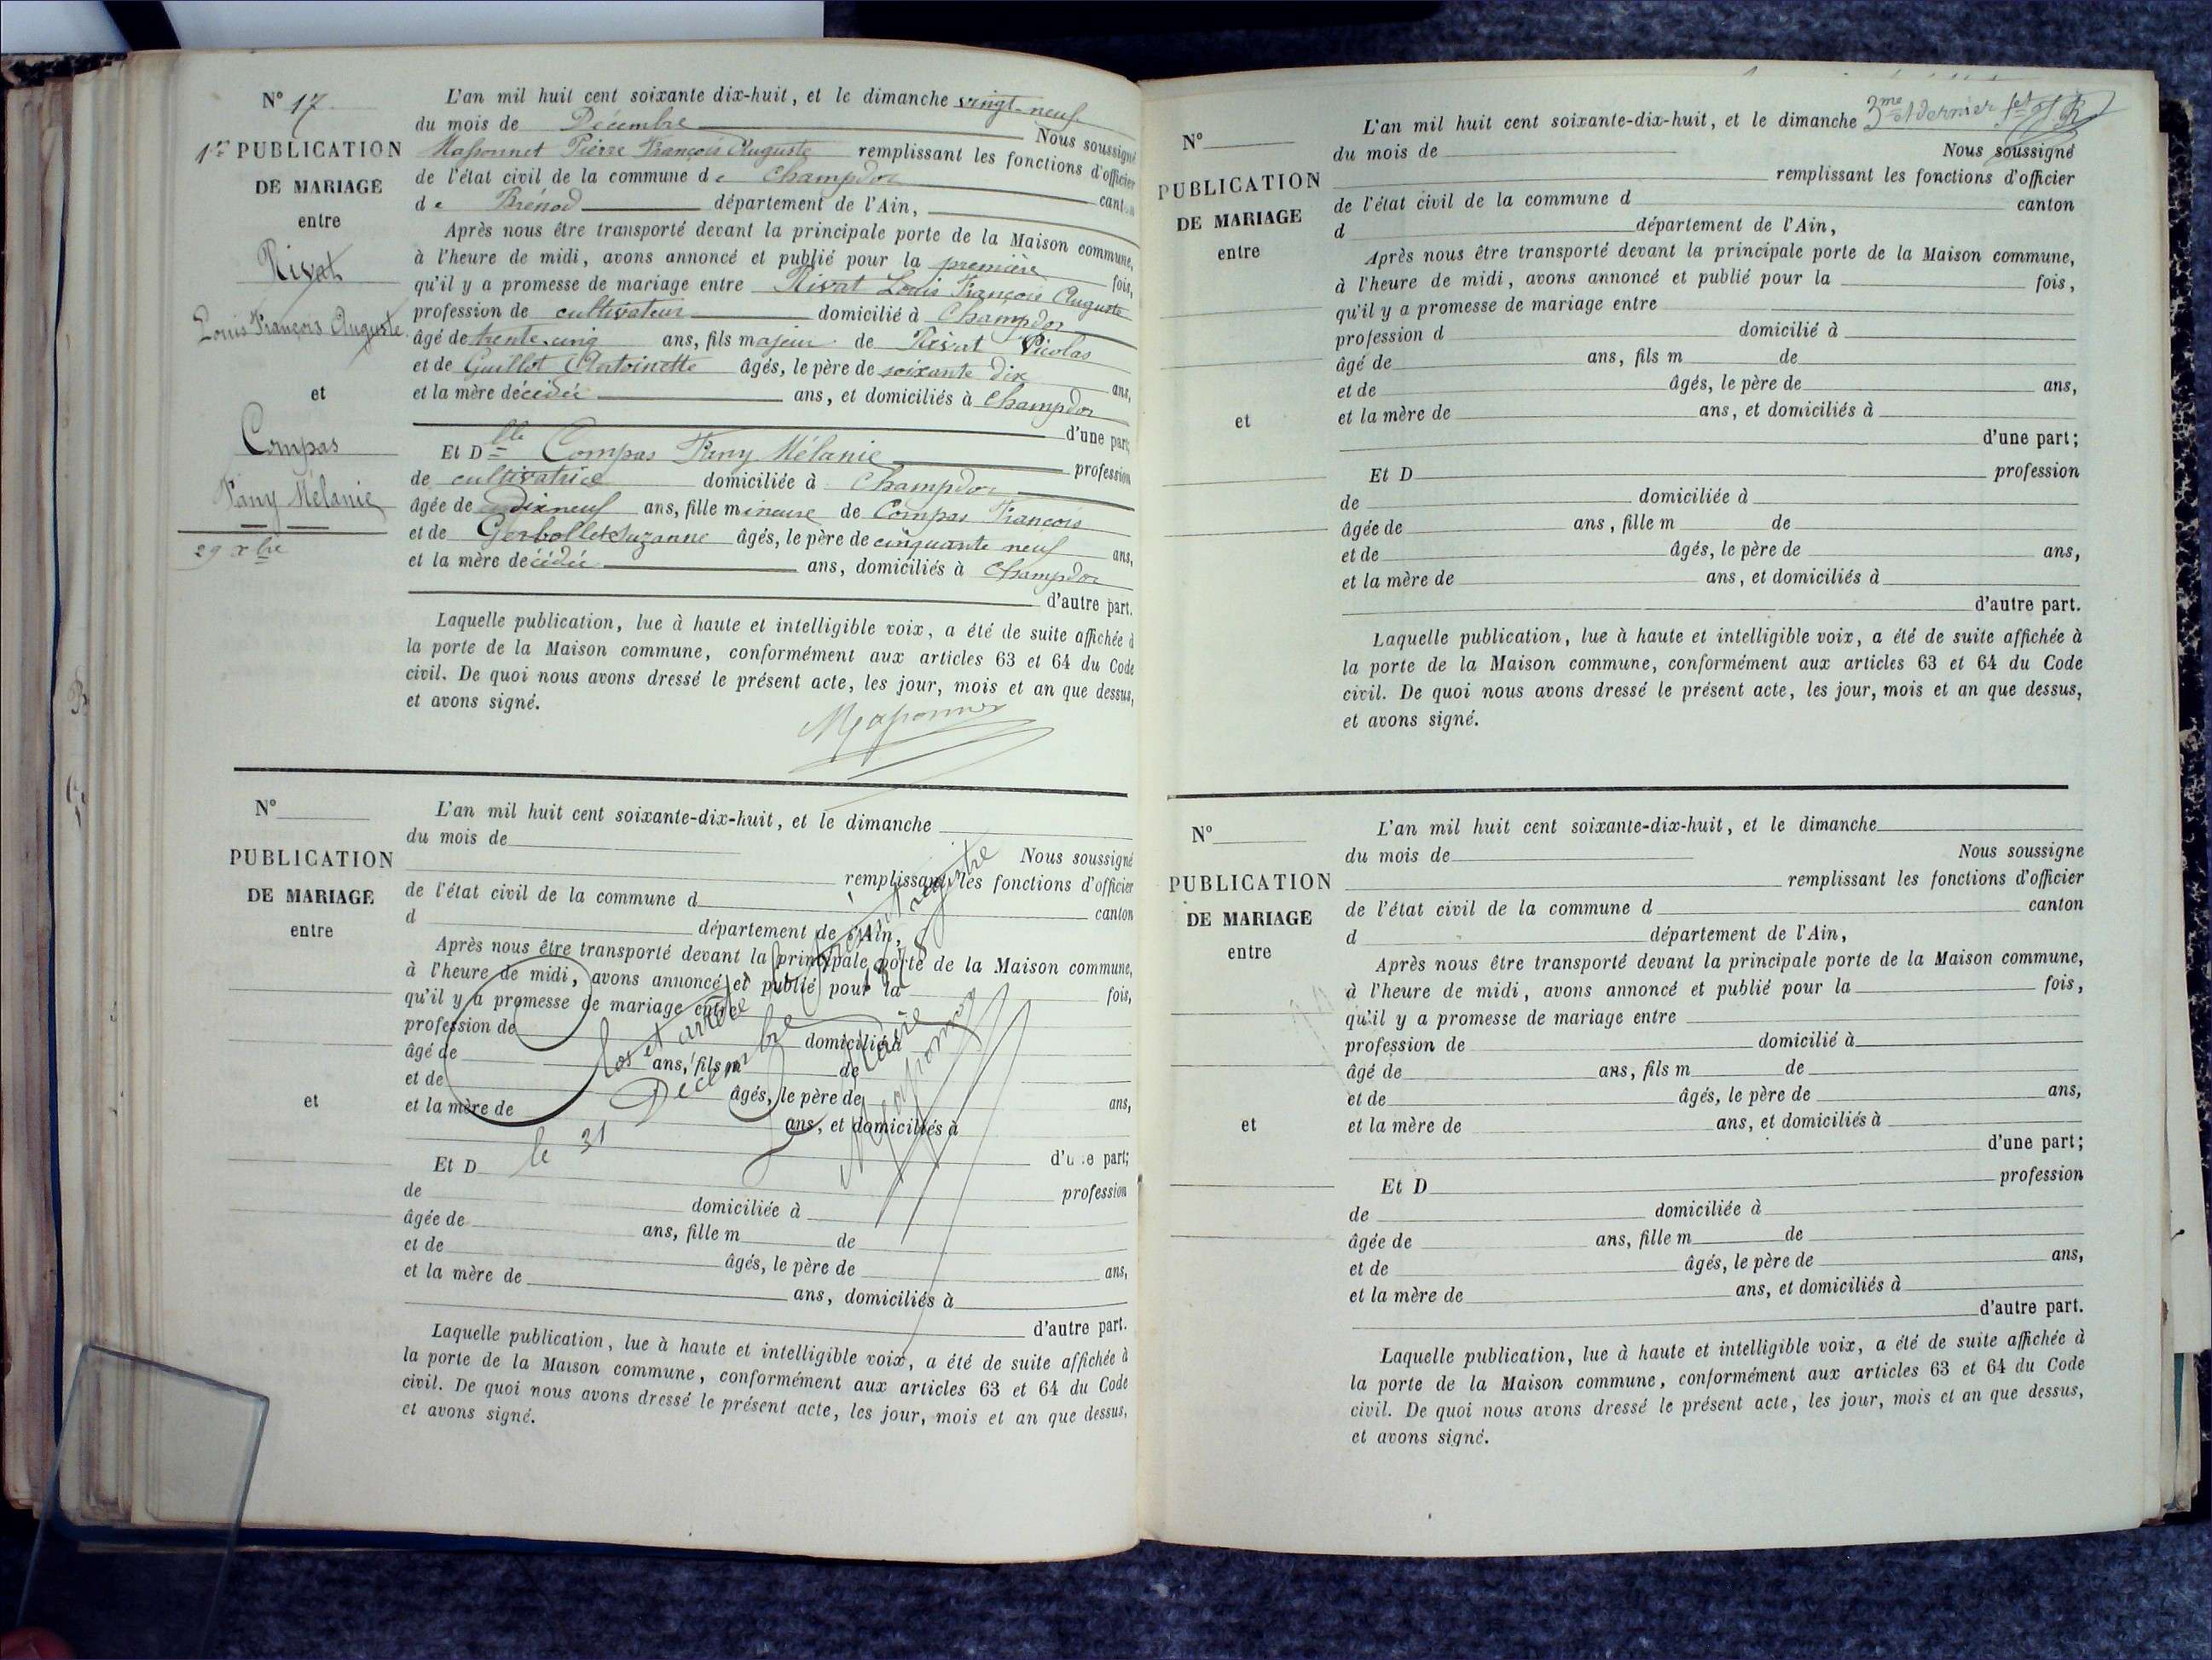 N° 17
1re PUBLICATION
DE MARIAGE
entre
Rivat
Louis François Auguste
et
Compas
Fany Mélanie
29 xbre
L'an mil huit cent soixante dix-huit, et le dimanche vingt-neuf
du mois de Décembre Nous soussigné
Massonnet Pierre François Auguste remplissant les fonctions d'officier
de l'état civil de la commune de Champdor canton
de Brénod département de l'Ain,
Après nous être transporté devant la principale porte de la Maison commune,
à l'heure de midi, avons annoncé et publié pour la première fois,
qu'il y a promesse de mariage entre Rivat Louis François Auguste
profession de cultivateur domicilié à Champdor
âgé de trente-cinq ans, fils majeur de Rivat Nicolas
et de Guillot Antoinette âgés, le père de soixante dix ans,
et la mère décédée ans, et domiciliés à Champdor
d'une part;
Et Dlle Compas Fany Mélanie profession
de cultivatrice domiciliée à Champdor
âgée de dixneuf ans, fille mineure de Compas François
et de Gerbollet Suzanne âgés, le père de cinquante neuf ans,
et la mère décédée ans, domiciliés à Champdor
d'autre part.
Laquelle publication, lue à haute et intelligible voix, a été de suite affichée à
la porte de la Maison commune, conformément aux articles 63 et 64 du Code
civil. De quoi nous avons dressé le présent acte, les jour, mois et an que dessus,
et avons signé.
Massonnet
N°
PUBLICATION
DE MARIAGE
entre
et
L'an mil huit cent soixante-dix-huit, et le dimanche
du mois de
Nous soussigné
remplissant les fonctions d'officier
de l'état civil de la commune d canton
d département de l'Ain,
Après nous être transporté devant la principale porte de la Maison commune,
à l'heure de midi, avons annoncé et publié pour la fois,
qu'il y a promesse de mariage entre
profession de domicilié à
âgé de ans, fils m de
et de âgés, le père de ans,
et la mère de ans, et domiciliés à
d'une part;
Et D profession
de domiciliée à
âgée de ans, fille m de
et de âgés, le père de ans,
et la mère de ans, domiciliés à
d'autre part.
Laquelle publication, lue à haute et intelligible voix, a été de suite affichée à
la porte de la Maison commune, conformément aux articles 63 et 64 du Code
civil. De quoi nous avons dressé le présent acte, les jour, mois et an que dessus,
et avons signé.
Clos et arrêté le présent registre
le 31 Décembre 1878
Le Maire
Massonnet
3me et dernier fet
N°
PUBLICATION
DE MARIAGE
entre
et
L'an mil huit cent soixante-dix-huit, et le dimanche
du mois de Nous soussigné
remplissant les fonctions d'officier
de l'état civil de la commune d canton
d département de l'Ain,
Après nous être transporté devant la principale porte de la Maison commune,
à l'heure de midi, avons annoncé et publié pour la fois,
qu'il y a promesse de mariage entre
profession d domicilié à
âgé de ans, fils m de
et de âgés, le père de ans,
et la mère de ans, et domiciliés à
d'une part;
Et D profession
de domiciliée à
âgée de ans, fille m de
et de âgés, le père de ans,
et la mère de ans, et domiciliés à
d'autre part.
Laquelle publication, lue à haute et intelligible voix, a été de suite affichée à
la porte de la Maison commune, conformément aux articles 63 et 64 du Code
civil. De quoi nous avons dressé le présent acte, les jour, mois et an que dessus,
et avons signé.
N°
PUBLICATION
DE MARIAGE
entre
et
L'an mil huit cent soixante-dix-huit, et le dimanche
du mois de Nous soussigne
remplissant les fonctions d'officier
de l'état civil de la commune d canton
d département de l'Ain,
Après nous être transporté devant la principale porte de la Maison commune,
à l'heure de midi, avons annoncé et publié pour la fois,
qu'il y a promesse de mariage entre
profession de domicilié à
âgé de ans, fils m de
et de âgés, le père de ans,
et la mère de ans, et domiciliés à
d'une part;
Et D profession
de domiciliée à
âgée de ans, fille m de
et de âgés, le père de ans,
et la mère de ans, et domiciliés à
d'autre part.
Laquelle publication, lue à haute et intelligible voix, a été de suite affichée à
la porte de la Maison commune, conformément aux articles 63 et 64 du Code
civil. De quoi nous avons dressé le présent acte, les jour, mois et an que dessus,
et avons signé.